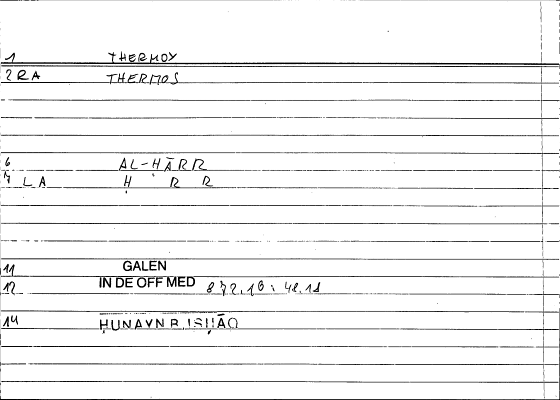 1 THERMOY
2 RA THERMOS
6 AL-ḤĀRR
7 LA Ḥ R R
11 GALEN
12 IN DE OFF MED 872.16 : 48.11
14 ḤUNAYN B. ISḤĀQ